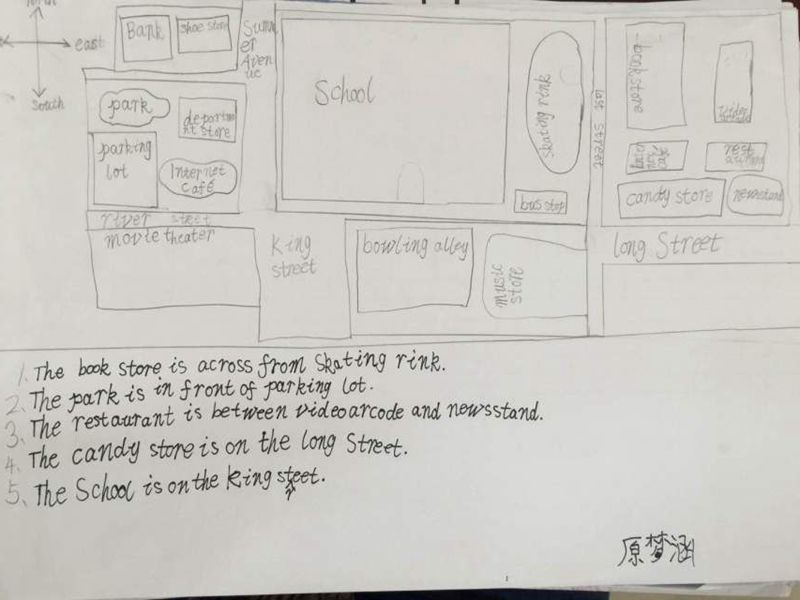 east
South
Bank
shoe store
park
department store
parking lot
Internet café
river street
movie theater
King street
School
skating rink
bus stop
bowling alley
music store
last street
bookstore
candy store
newsstand
long Street
1. The book store is across from skating rink.
2. The park is in front of parking lot.
3. The restaurant is between videoarcode and newsstand.
4. The candy store is on the long Street.
5. The School is on the king steet.
原梦涵